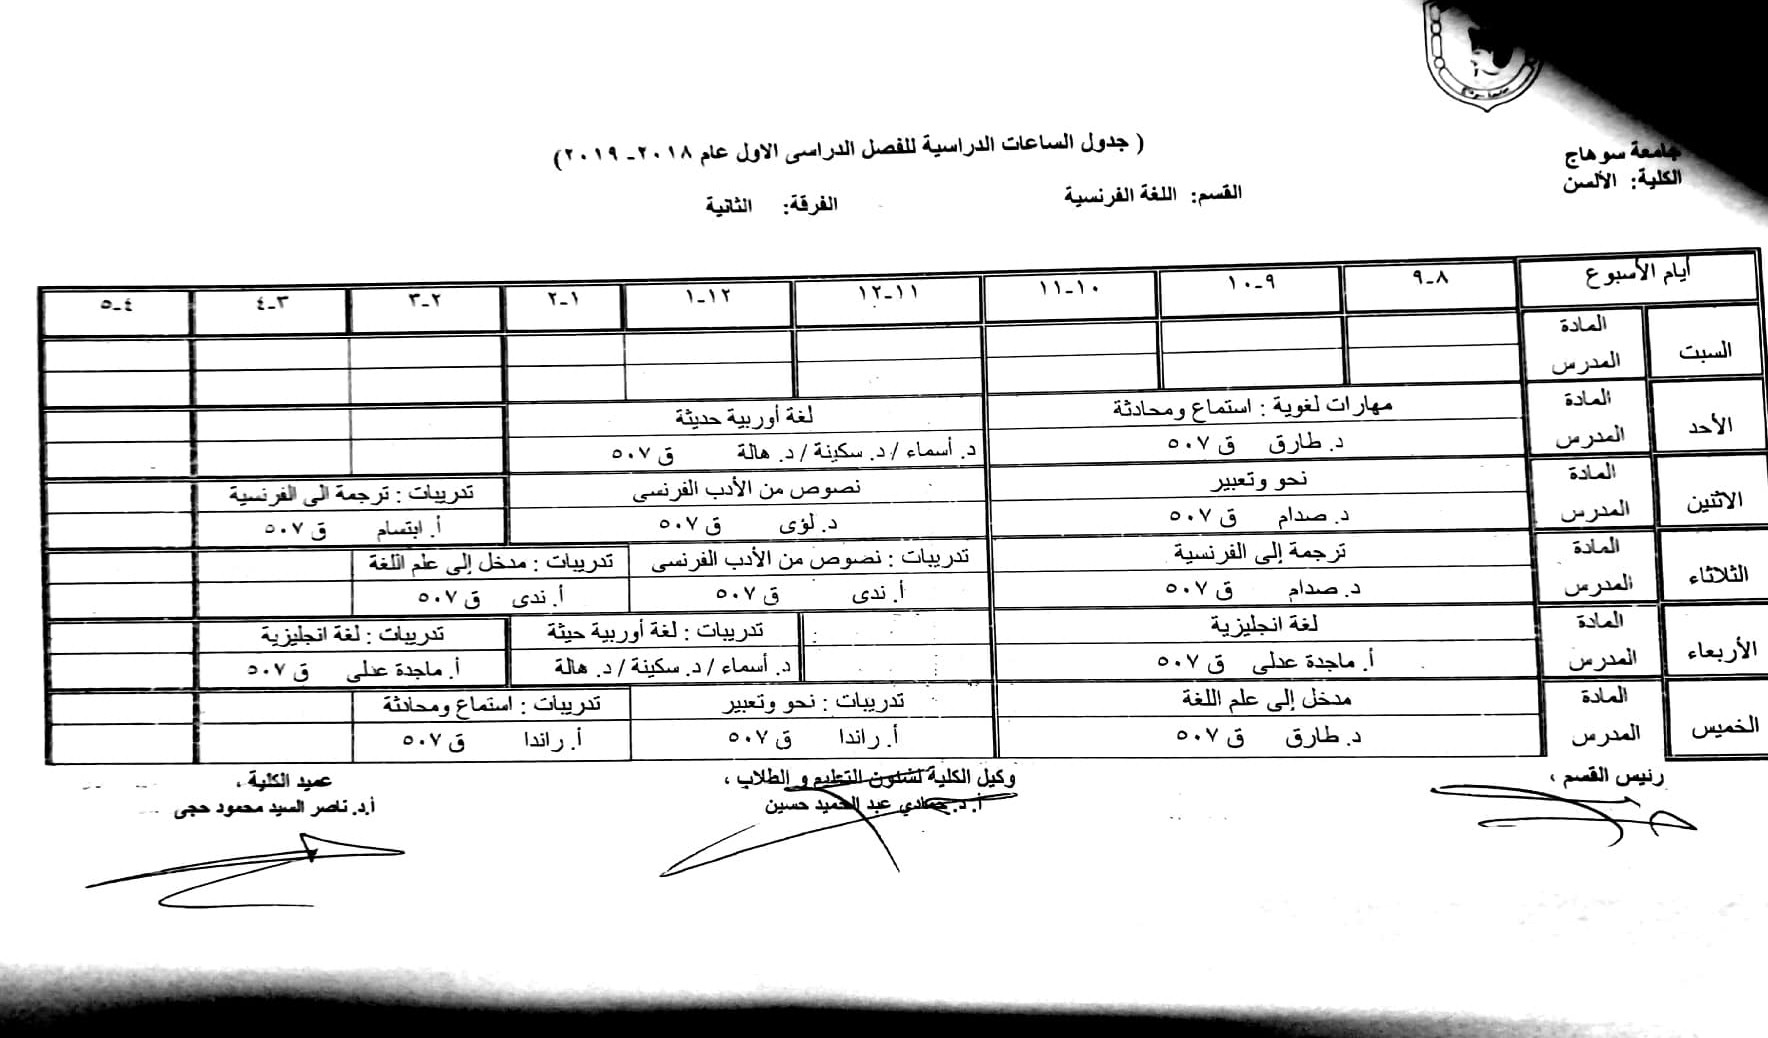 جامعة سوهاج
الكلية: الألسن
( جدول الساعات الدراسية للفصل الدراسى الاول عام ٢٠١٨-٢٠١٩)
القسم: اللغة الفرنسية الفرقة: الثانية
أيام الأسبوع ٨-٩ ٩-١٠ ١٠-١١ ١١-١٢ ١٢-١ ١-٢ ٢-٣ ٣-٤ ٤-٥
السبت
المادة
المدرس
الأحد
المادة مهارات لغوية : استماع ومحادثة لغة أوربية حديثة
المدرس د. طارق ق ٥٠٧ د. أسماء / د. سكينة / د. هالة ق ٥٠٧
الاثنين
المادة نحو وتعبير نصوص من الأدب الفرنسى تدريبات : ترجمة الى الفرنسية
المدرس د. صدام ق ٥٠٧ د. لؤى ق ٥٠٧ أ. ابتسام ق ٥٠٧
الثلاثاء
المادة ترجمة إلى الفرنسية تدريبات : نصوص من الأدب الفرنسى تدريبات : مدخل إلى علم اللغة
المدرس د. صدام ق ٥٠٧ أ. ندى ق ٥٠٧ أ. ندى ق ٥٠٧
الأربعاء
المادة لغة انجليزية تدريبات : لغة أوربية حيثة تدريبات : لغة انجليزية
المدرس أ. ماجدة عدلى ق ٥٠٧ د. أسماء / د. سكينة / د. هالة أ. ماجدة عدلى ق ٥٠٧
الخميس
المادة مدخل إلى علم اللغة تدريبات : نحو وتعبير تدريبات : استماع ومحادثة
المدرس د. طارق ق ٥٠٧ أ. راندا ق ٥٠٧ أ. راندا ق ٥٠٧
رئيس القسم ، وكيل الكلية لشئون التعليم و الطلاب ، عميد الكلية ،
أ.د. حمادي عبد الحميد حسين أ.د. ناصر السيد محمود حجى